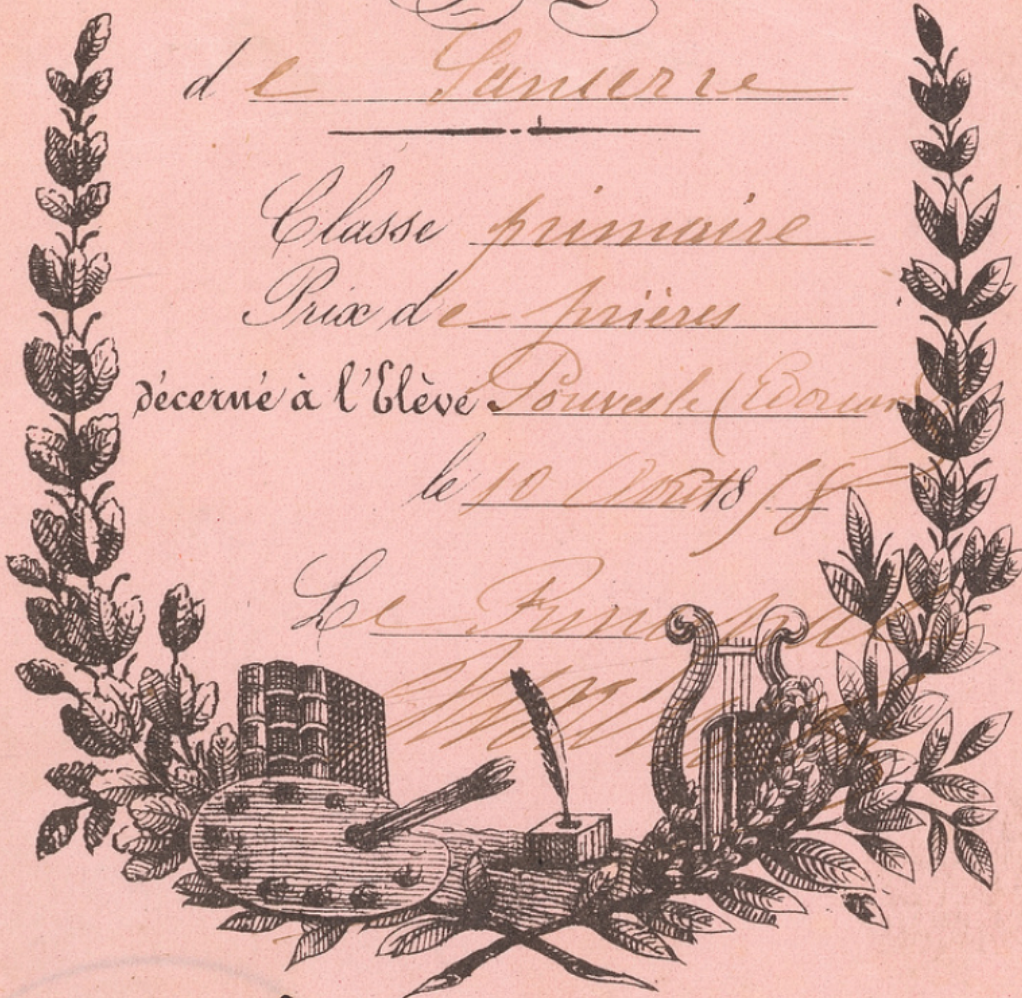 de Sancerre
Classe primaire
Prix de prières
décerné à l'Elève (Edouard)
le 10 Août 1858
Le Principal